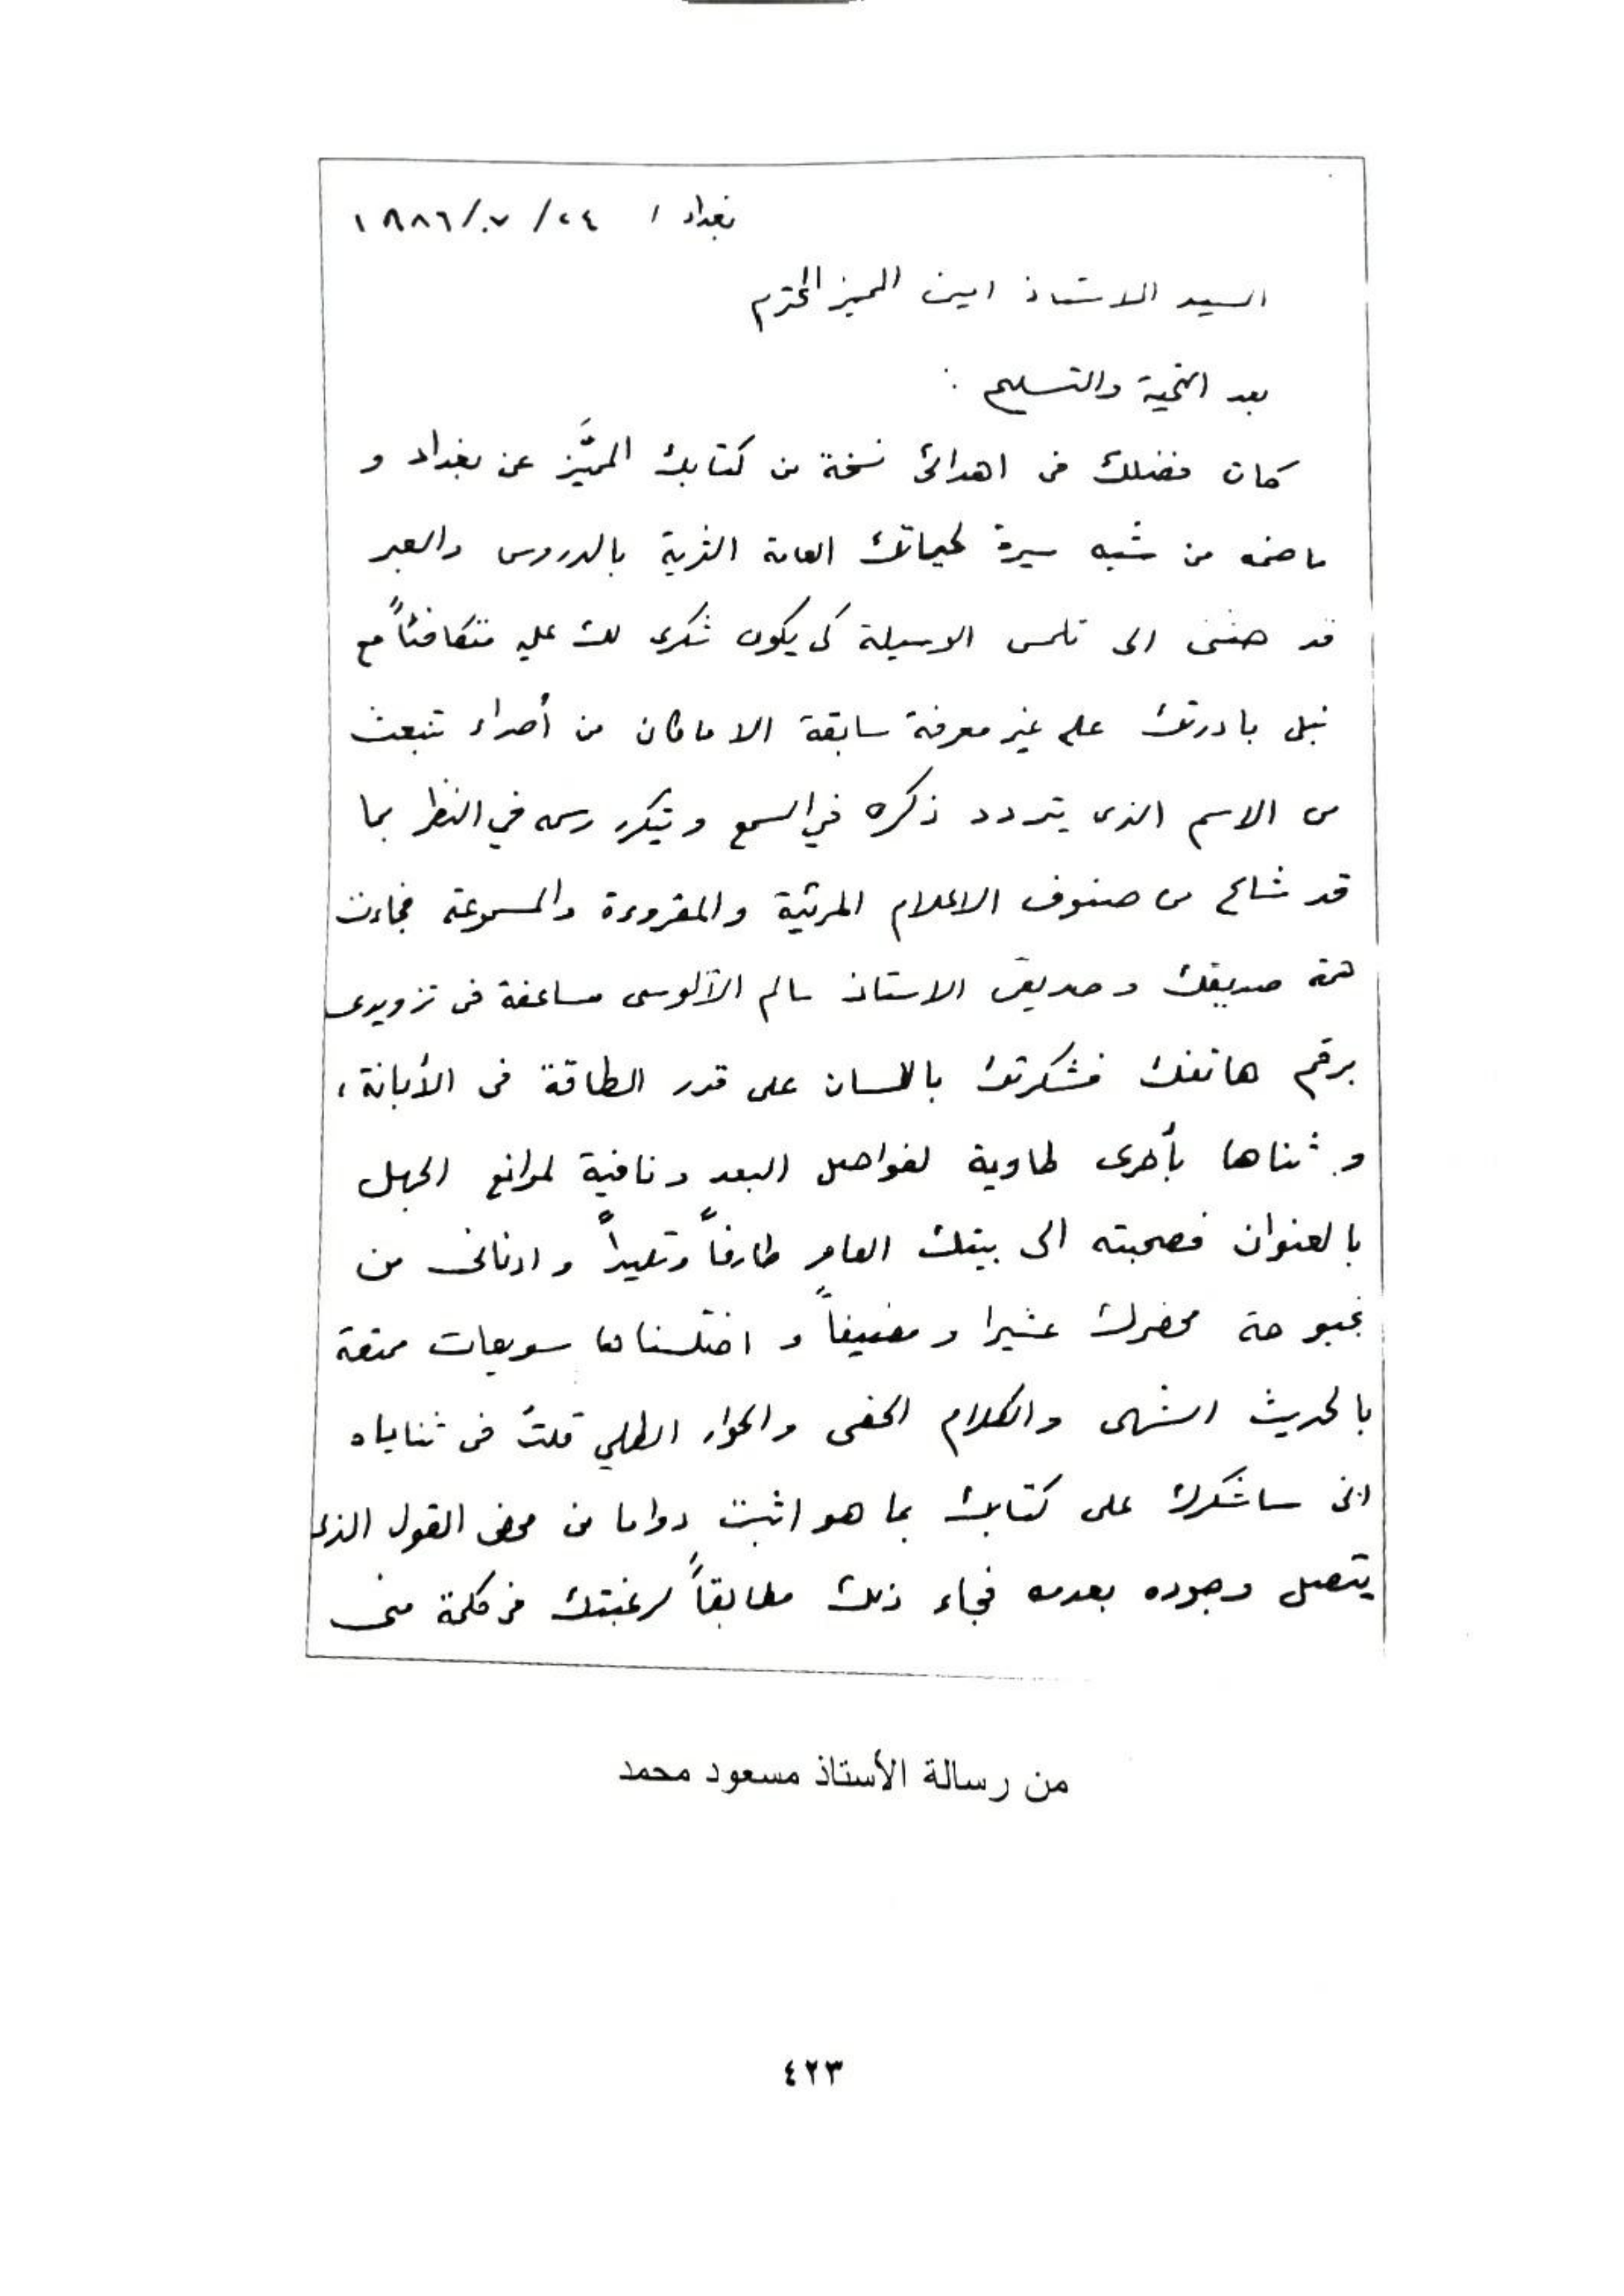 بغداد / ٢٤ / ٠٧ / ١٩٨٦
السيد الاستاذ امين المميز المحترم
بعد التحية والتسليم :
كان فضلك في اهدائي نسخة من كتابك المميَّز عن بغداد و
ما ضمه من شبه سيرة لحياتك العامة الثرية بالدروس والعبر
قد حثني الى تلمس الوسيلة كي يكون شكري لك عليه متكافئاً مع
نبل بادرتك على غير معرفة سابقة الا ما كان من أصداء تنبعث
من الاسم الذي يتردد ذكره في السمع ويتكرر رسمه في النظر بما
قد شاع من صنوف الاعلام المرئية والمقروءة والمسموعة فجاءت
همة صديقك وصديقي الاستاذ سالم الآلوسي مساعفة في تزويدي
برقم هاتفك فشكرتك باللسان على قدر الطاقة في الأبانة ،
و ثناها بأخرى طاوية لفواصل البعد ونافية لموانع الجهل
بالعنوان فصحبته الى بيتك العامر طارفاً وتليداً وادناني من
بحبوحة محضرك عشيرا ومضيفاً و اختلسناها سويعات ممتعة
بالحديث الشهي والكلام الحفي والحوار الطلي قلتُ في ثناياه
اني ساشكرك على كتابك بما هو اثبت دواما من محض القول الذي
يتصل وجوده بعدمه فجاء ذلك مطابقاً لرغبتك في كلمة مني
من رسالة الأستاذ مسعود محمد
٤٢٣